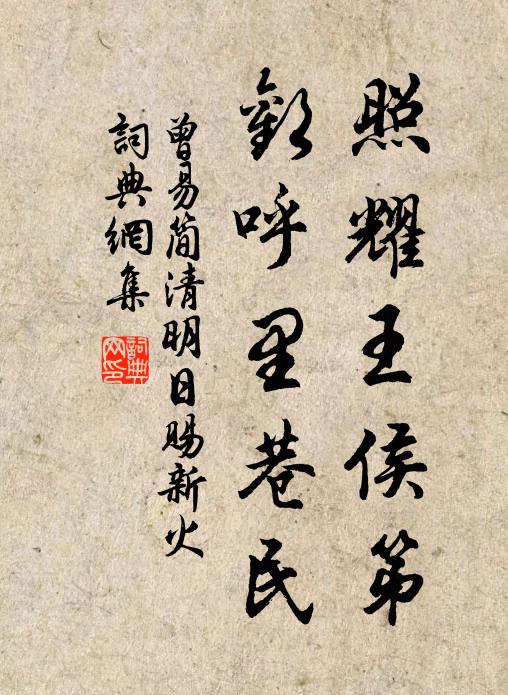 照耀王侯第
歡呼里巷民
曾易简清明日賜新火
詞典網集
詞典網印